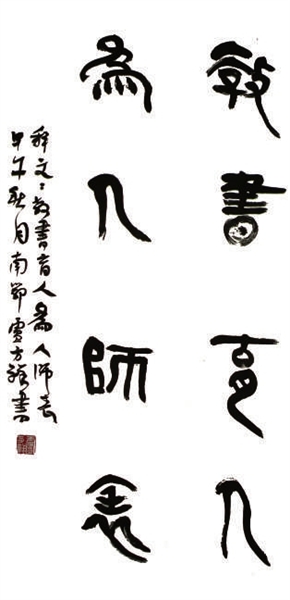 教書育人
為人師表
釋文：教書育人為人師表
甲午秋月南方書